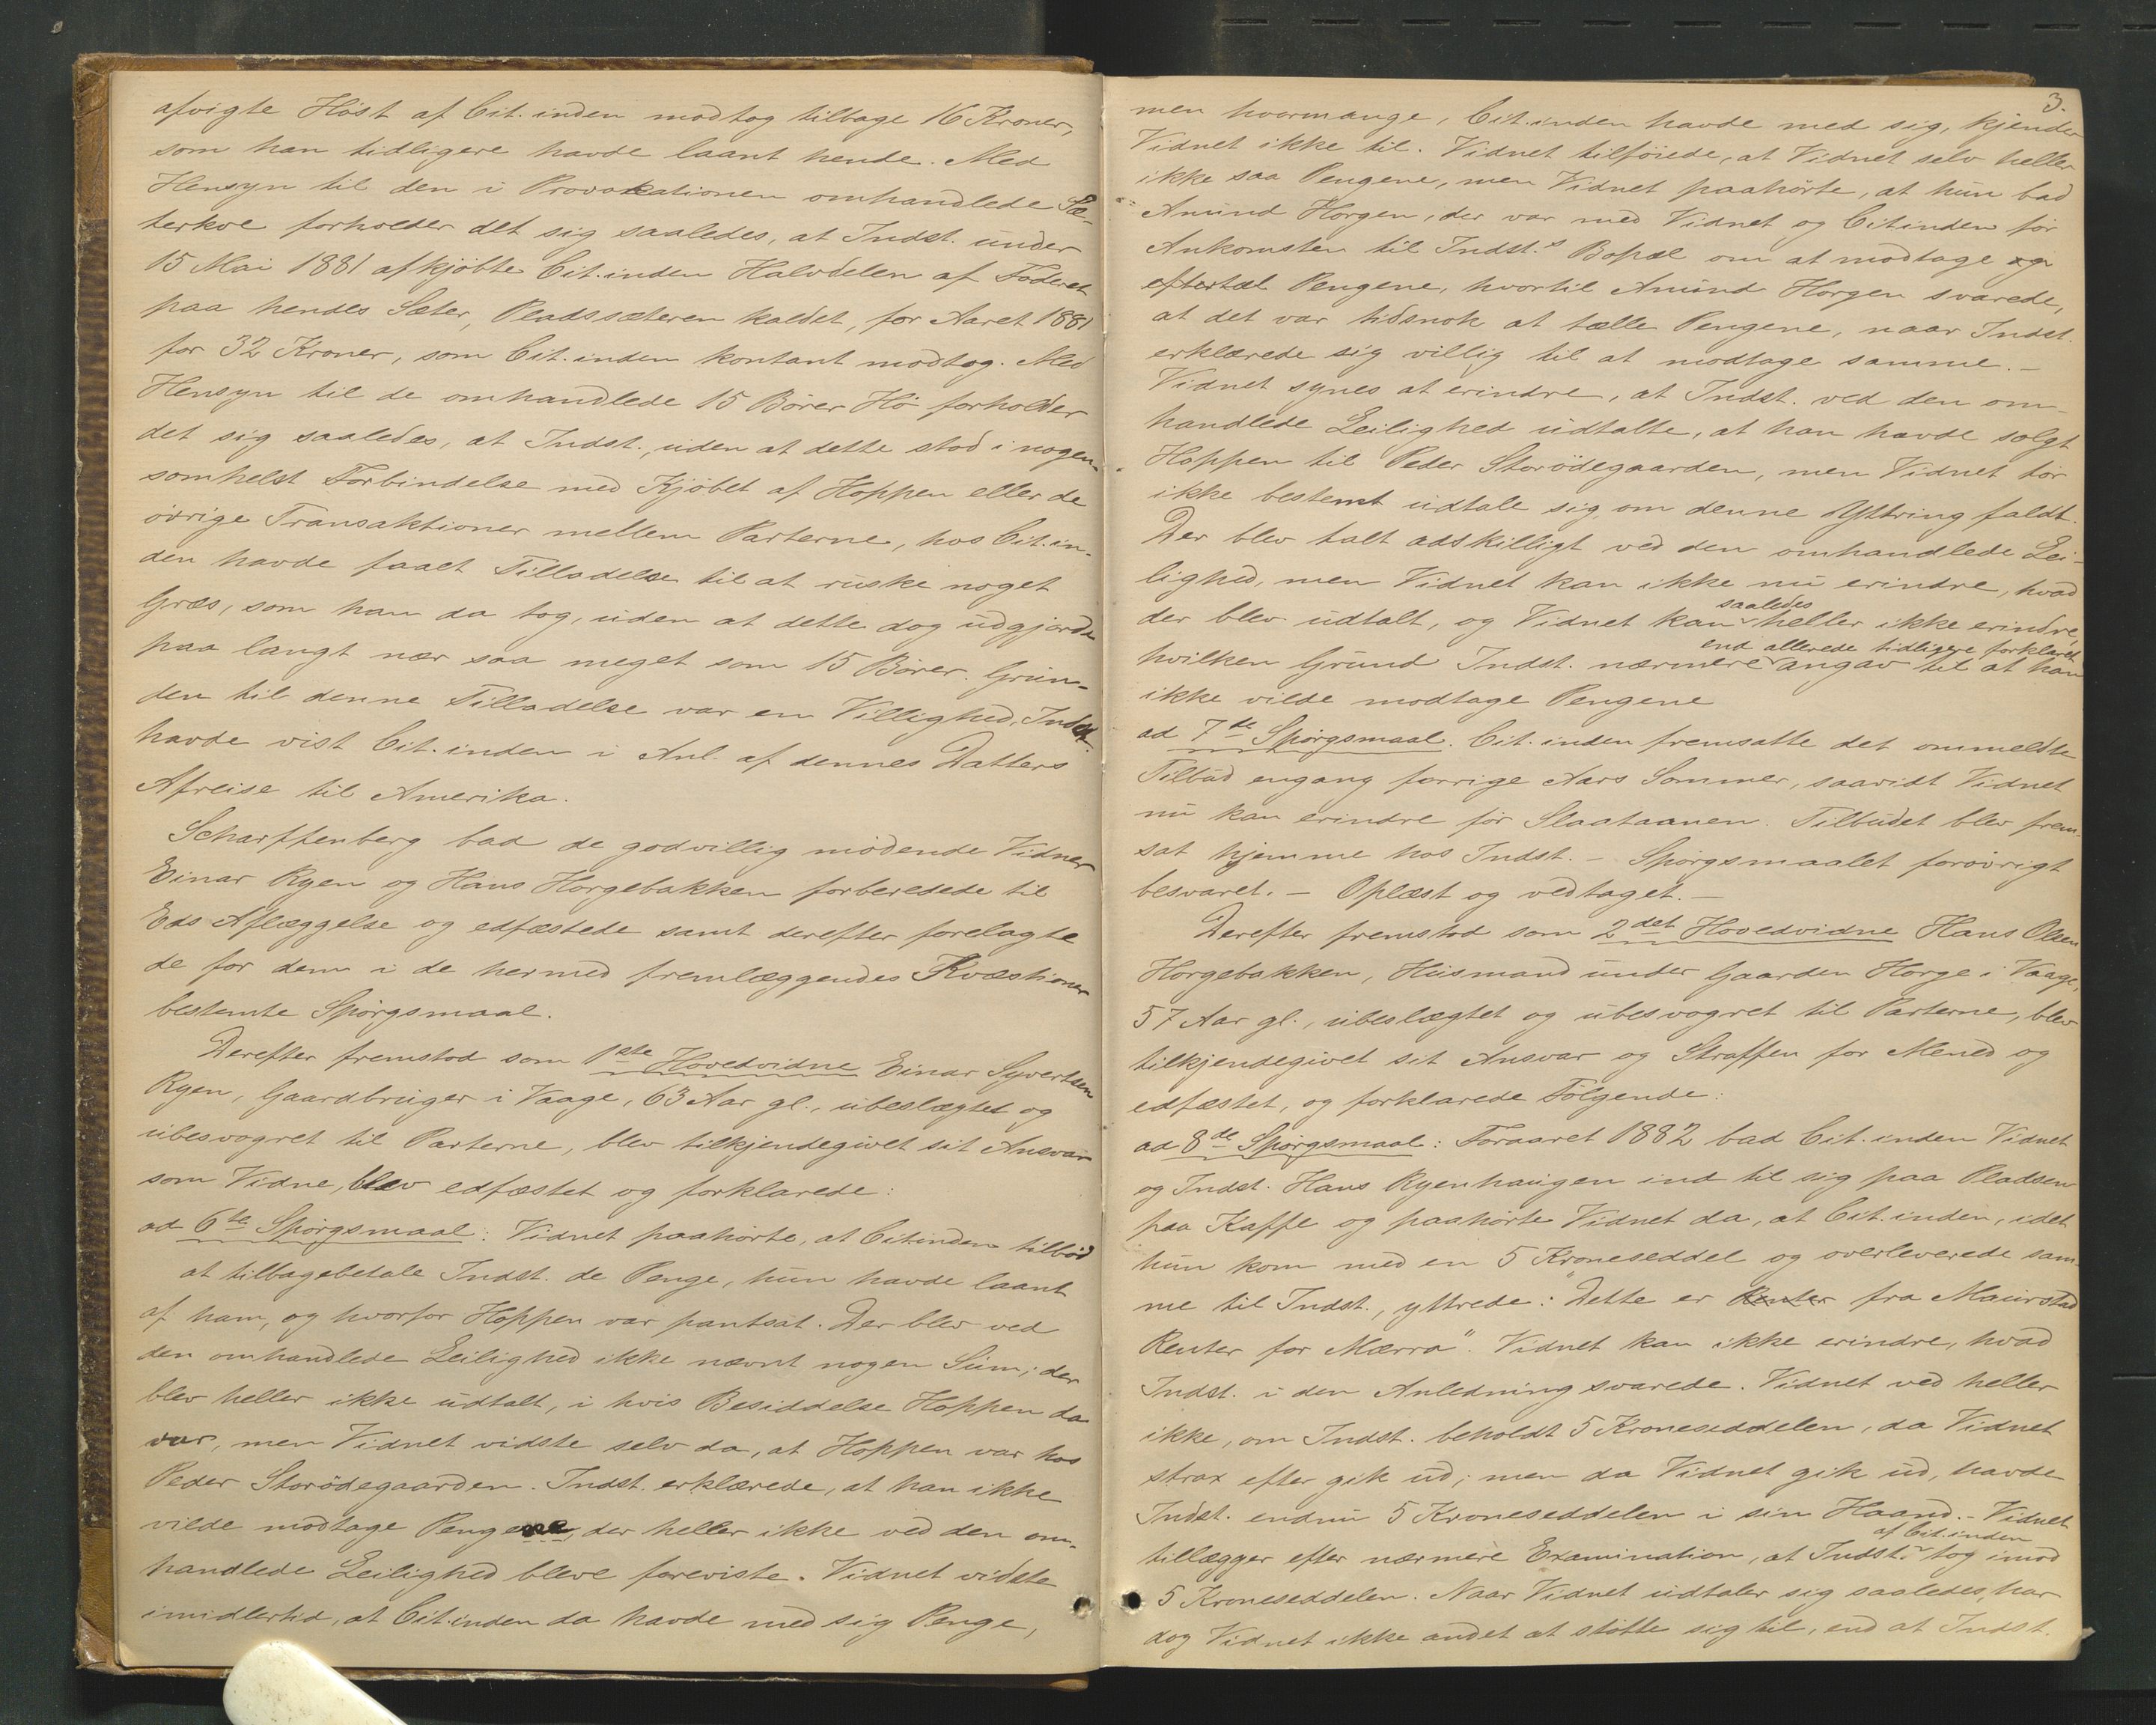 afvigte Höst af Cit. inden modtog tilbage 16 Kroner,
som han tidligere havde laant hende. Med
Hensyn til den i Provokationen omhandlede Sæ-
terkve forholder det sig saaledes, at Indst. under
15 Mai 1881 afkjöbte Cit. inden Halvdelen af Föderet
paa hendes Sæter, Pladssæteren kaldet, for Aaret 1881
for 32 Kroner, som Cit. inden kontant modtog. Med
Hensyn til de omhandlede 15 Börer Hö forholder
det sig saaledes, at Indst., uden at dette stod i nogen-
somhelst Forbindelse med Kjöbet af Hoppen eller de
övrige Transaktioner mellem Parterne, hos Cit. in-
den havde faaet Tilladelse til at ruske noget
Græs, som han da tog, uden at dette dog udgjorde
paa langt nær saa meget som 15 Börer. Grun-
den til denne Tilladelse var en Villighed, Indst.
havde vist Cit. inden i Anl. af dennes Datters
Afreise til Amerika.
Scharffenberg bad de godvillig mödende Vidner
Einar Ryen og Hans Horgebakken forberedede til
Eds Aflæggelse og edfæstede samt derefter forelagte
de for dem i de hermed fremlæggendes Kvæstioner
bestemte Spörgsmaal.
Derefter fremstod som 1ste Hovedvidne Einar Syvertsen
Ryen, Gaardbruger i Vaage, 63 Aar gl., ubeslægtet og
ubesvogret til Parterne, blev tilkjendegivet sit Ansvar
som Vidne, blev edfæstet og forklarede:
ad 6te Spörgsmaal: Vidnet paahörte, at Citinden tilböd
at tilbagebetale Indst. de Penge, hun havde laant
af ham, og hvorfor Hoppen var pantsat. Der blev ved
den omhandlede Leilighed ikke nævnt nogen Sum; der
blev heller ikke udtalt, i hvis Besiddelse Hoppen da
var, men Vidnet vidste selv da, at Hoppen var hos
Peder Storödegaarden. Indst. erklærede, at han ikke
vilde modtage Pengene, der heller ikke ved den om-
handlede Leilighed bleve foreviste. Vidnet vidste
imidlertid, at Cit. inden da havde med sig Penge,
3.
men hvormange, Cit. inden havde med sig, kjender
Vidnet ikke til. Vidnet tilföiede, at Vidnet selv heller
ikke saa Pengene, men Vidnet paahörte, at hun bad
Amund Horgen, der var med Vidnet og Citinden för
Ankomsten til Indst.s Bopæl om at modtage og
eftertæl Pengene, hvortil Amund Horgen svarede,
at det var tidsnok at tælle Pengene, naar Indst.
erklærede sig villig til at modtage samme. –
Vidnet synes at erindre, at Indst. ved den om-
handlede Leilighed udtalte, at han havde solgt
Hoppen til Peder Storödegaarden, men Vidnet tör
ikke bestemt udtale sig, om denne Yttring faldt.
Der blev talt adskilligt ved den omhandlede Lei-
lighed, men Vidnet kan ikke nu erindre, hvad
saaledes
der blev udtalt, og Vidnet kan heller ikke erindre,
end allerede tidligere forklaret
hvilken Grund Indst. nærmere angav til at han
ikke vilde modtage Pengene
ad 7de Spörgsmaal. Cit. inden fremsatte det ommeldte
Tilbud engang forrige Aars Sommer, saavidt Vidnet
nu kan erindre för Slaataanen. Tilbudet blev frem-
sat hjemme hos Indst. – Spörgsmaalet forövrigt
besvaret. – Oplæst og vedtaget. –
Derefter fremstod som 2det Hovedvidne Hans Olsen
Horgebakken, Husmand under Gaarden Horge i Vaage,
57 Aar gl., ubeslægtet og ubesvogret til Parterne, blev
tilkjendegivet sit Ansvar og Straffen for Mened og
edfæstet, og forklarede Fölgende:
ad 8de Spörgsmaal: Foraaret 1882 bad Cit. inden Vidnet
og Indst. Hans Ryenhaugen ind til sig paa Pladsen
paa Kaffe og paahörte Vidnet da, at Cit. inden, idet
hun kom med en 5 Kroneseddel og overleverede sam-
me til Indst., yttrede: "Dette er Renter fra Maurstad
Renter for Mærra". Vidnet kan ikke erindre, hvad
Indst. i den Anledning svarede. Vidnet ved heller
ikke, om Indst. beholdt 5 Kroneseddelen, da Vidnet
strax efter gik ud; men da Vidnet gik ud, havde
Indst. endnu 5 Kroneseddelen i sin Haand. – Vidnet
af Cit. inden
tillægger efter nærmere Examination, at Indst. tog imod
5 Kroneseddelen. Naar Vidnet udtaler sig saaledes, har
dog Vidnet ikke andet at stötte sig til, end at Indst.